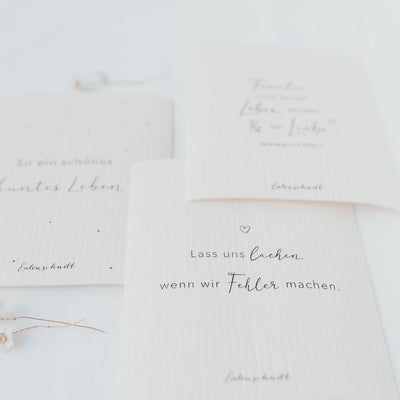 So ein schönes
buntes Leben
Eulenschnitt
Familie
wo das
Leben beginnt
& die Liebe
niemals endet
Eulenschnitt
Lass uns lachen,
wenn wir Fehler machen.
Eulenschnitt